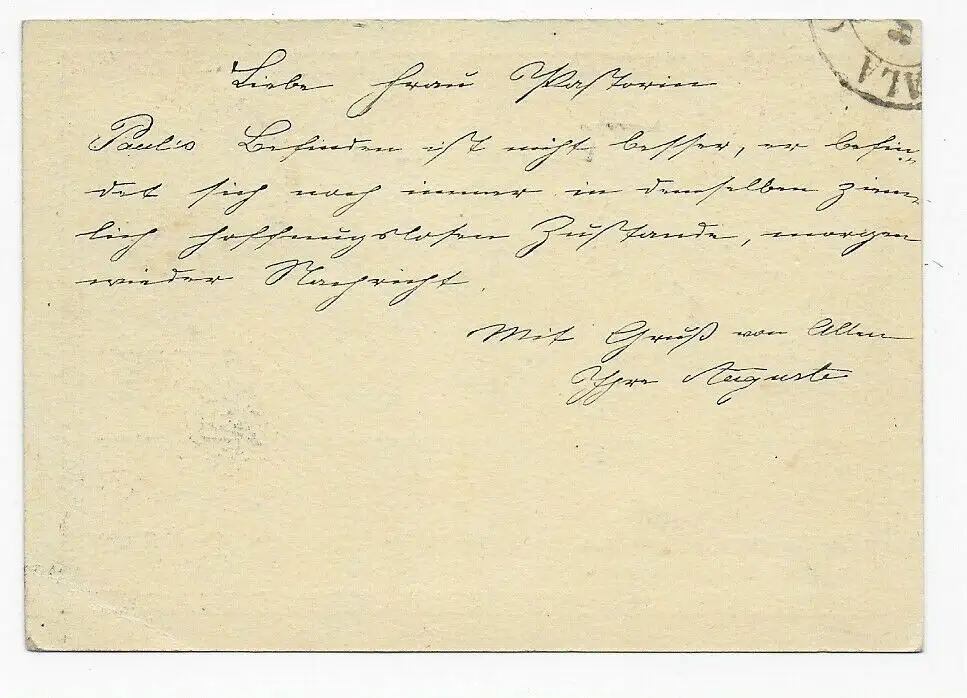 ALA
Liebe Frau Pastorin
Paul's Befinden ist nicht besser, er befin-
det sich noch immer in demselben ziem-
lich hoffnungslosen Zustande, morgen
wieder Nachricht.
Mit Gruß von Allen
Ihre Auguste